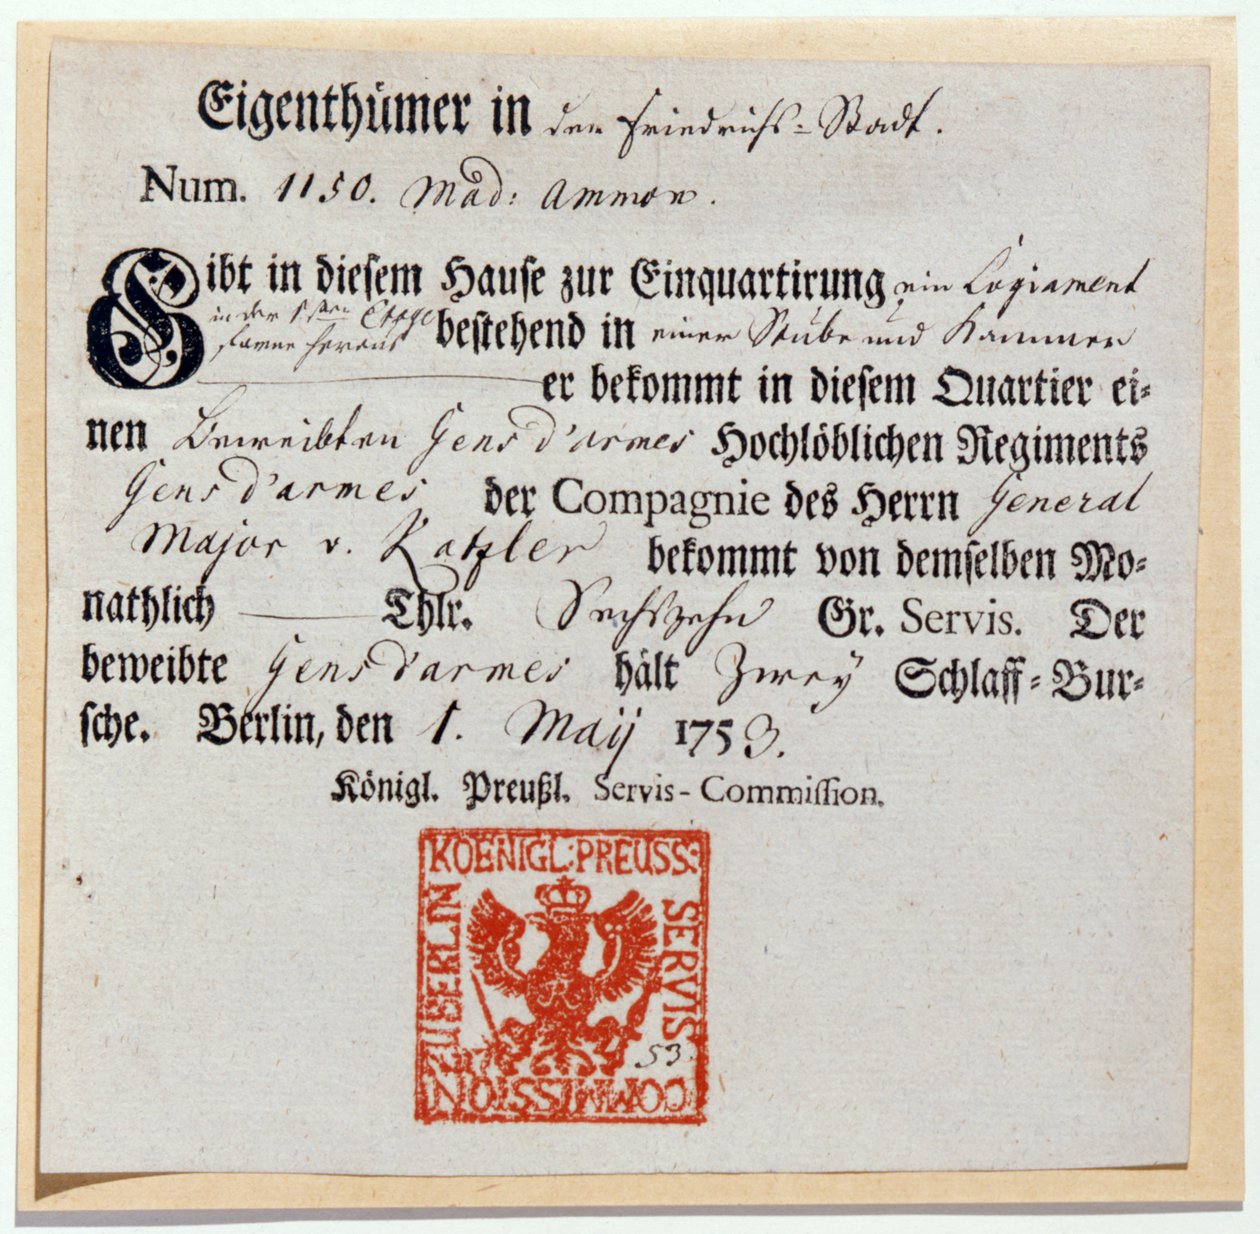 Eigenthümer in der Friedrichs-Stadt.
Num. 1150. Mad: Ammon.
Gibt in diesem Hause zur Einquartirung ein Logiament
in der 1sten Etage
forne heraus bestehend in einer Stube und Kammer
er bekommt in diesem Quartier ei-
nen Beweibten Gens d'armes Hochlöblichen Regiments
Gens d'armes der Compagnie des Herrn General
Major v. Katzler bekommt von demselben Mo-
nathlich — Thlr. Sechszehn Gr. Servis. Der
beweibte Gens d'armes hält Zwey Schlaff-Bur-
sche. Berlin, den 1. Maij 1753.
Königl. Preußl. Servis-Commission.
KOENIGL: PREUSS:
SERVIS
COMMISSION
ZU BERLIN
53